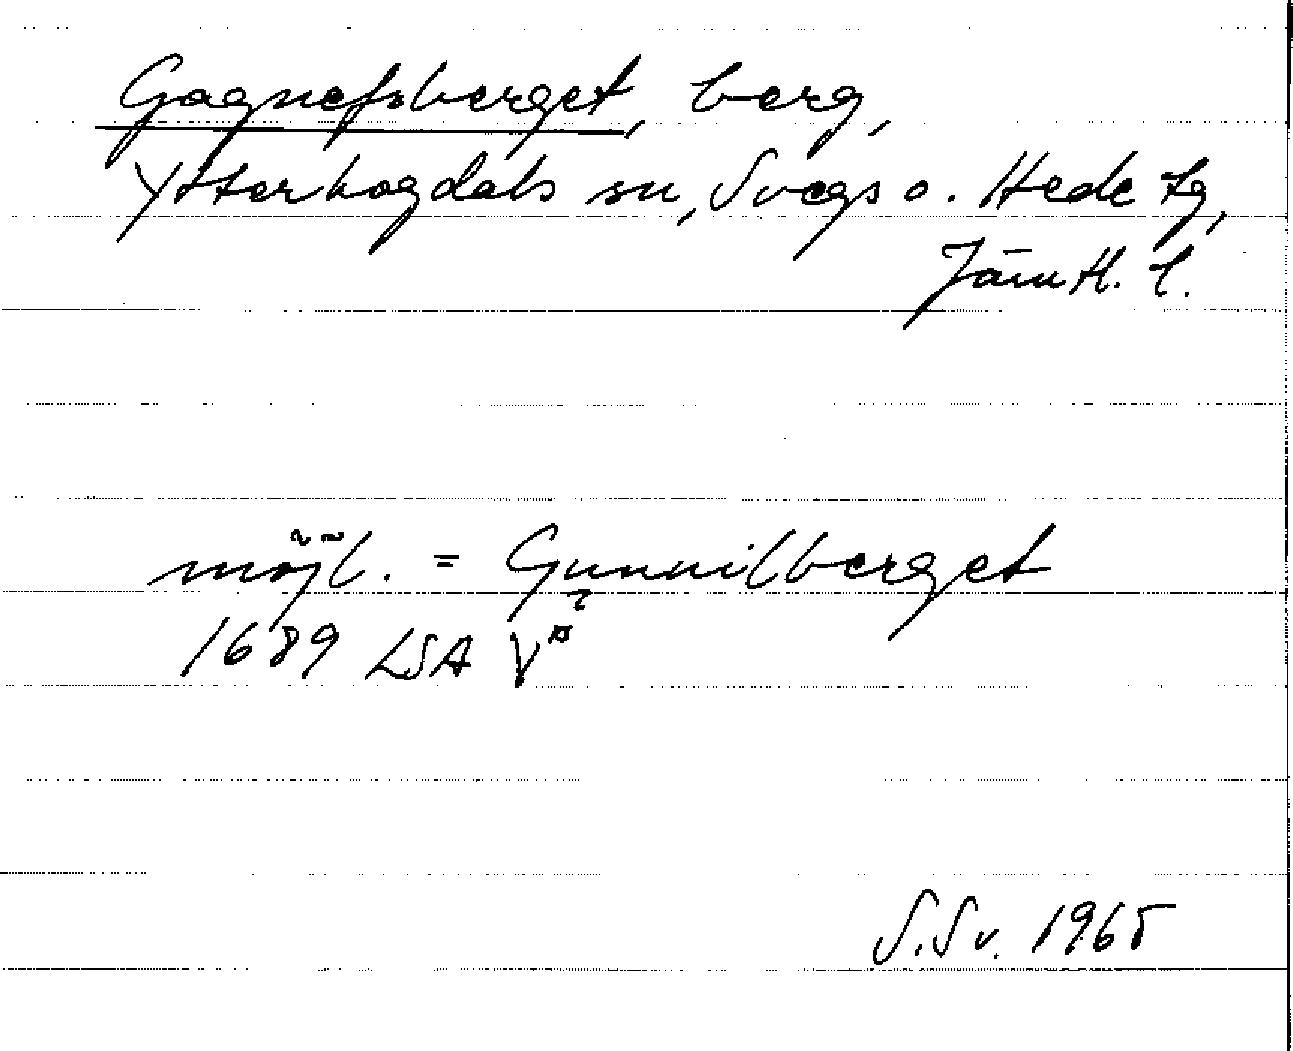 Gagnefsberget, berg,
Ytterhogdals sn, Svegs o. Hede tg,
Jämtl. l.
möjl. = Gunnilberget
1689 LSA V¤
S.Sv. 1965